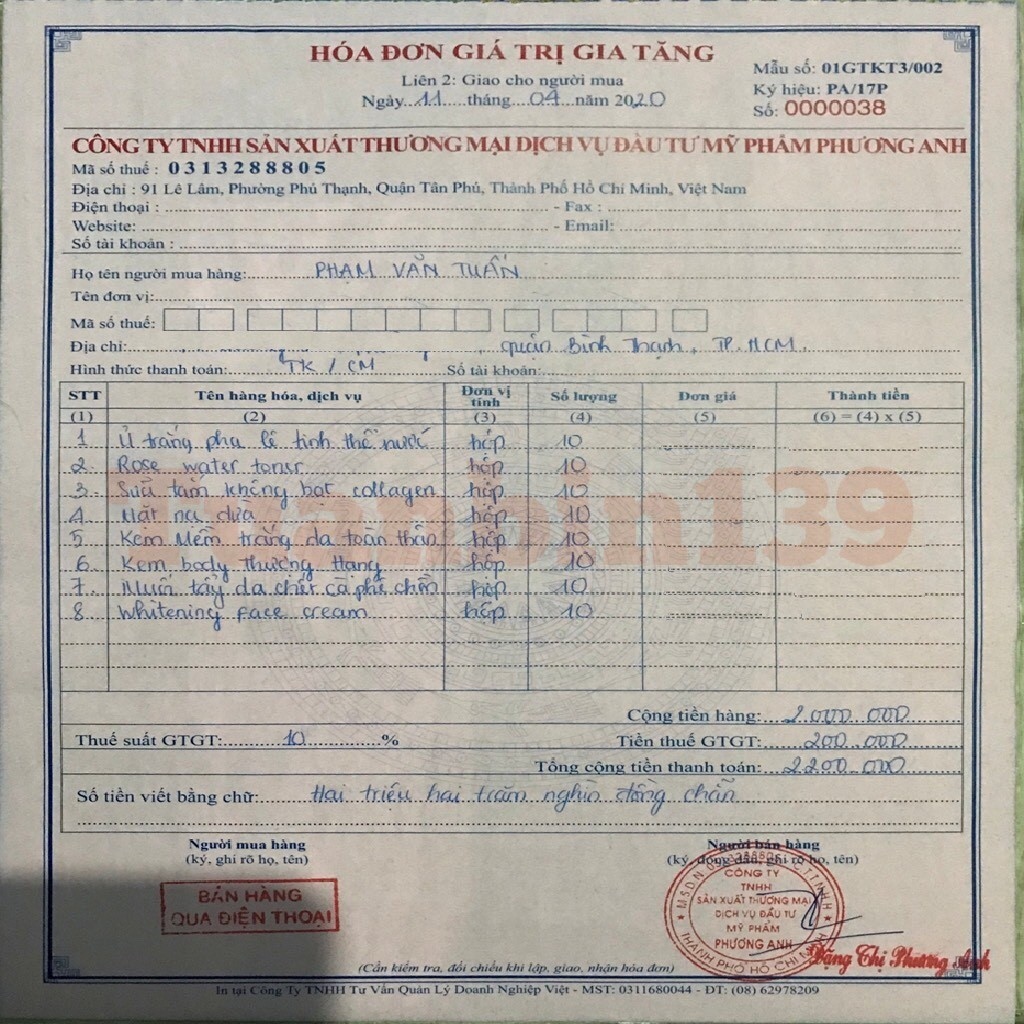 HÓA ĐƠN GIÁ TRỊ GIA TĂNG
Liên 2: Giao cho người mua
Ngày 11 tháng 04 năm 2020
Mẫu số: 01GTKT3/002
Ký hiệu: PA/17P
Số: 0000038
CÔNG TY TNHH SẢN XUẤT THƯƠNG MẠI DỊCH VỤ ĐẦU TƯ MỸ PHẨM PHƯƠNG ANH
Mã số thuế : 0313288805
Địa chỉ : 91 Lê Lâm, Phường Phú Thạnh, Quận Tân Phú, Thành Phố Hồ Chí Minh, Việt Nam
Điện thoại : - Fax :
Website: - Email:
Số tài khoản :
Họ tên người mua hàng: PHẠM VĂN TUẤN
Tên đơn vị:
Mã số thuế:
Địa chỉ: , quận Bình Thạnh, TP.HCM.
Hình thức thanh toán: TK / CM Số tài khoản:
STT Tên hàng hóa, dịch vụ Đơn vị tính Số lượng Đơn giá Thành tiền
(1) (2) (3) (4) (5) (6) = (4) x (5)
1 Ủ trắng pha lê tinh thể nước hộp 10
2 Rose water toner hộp 10
3 Sữa tắm không bọt collagen hộp 10
4 Mặt nạ dừa hộp 10
5 Kem Mềm trắng da toàn thân hộp 10
6 Kem body thượng Hạng hộp 10
7 Muối tẩy da chết cà phê hộp 10
8 Whitening Face cream hộp 10
Cộng tiền hàng: 2.000.000
Thuế suất GTGT: 10 % Tiền thuế GTGT: 200.000
Tổng cộng tiền thanh toán: 2.200.000
Số tiền viết bằng chữ: Hai triệu hai trăm nghìn đồng chẵn
Người mua hàng
(ký, ghi rõ họ, tên)
Người bán hàng
(ký, đóng dấu, ghi rõ họ, tên)
BÁN HÀNG
QUA ĐIỆN THOẠI
CÔNG TY
TNHH
SẢN XUẤT THƯƠNG MẠI
DỊCH VỤ ĐẦU TƯ
MỸ PHẨM
PHƯƠNG ANH
THÀNH PHỐ HỒ CHÍ
Đặng Thị Phương Anh
(Cần kiểm tra, đối chiếu khi lập, giao, nhận hóa đơn)
In tại Công Ty TNHH Tư Vấn Quản Lý Doanh Nghiệp Việt - MST: 0311680044 - ĐT: (08) 62978209